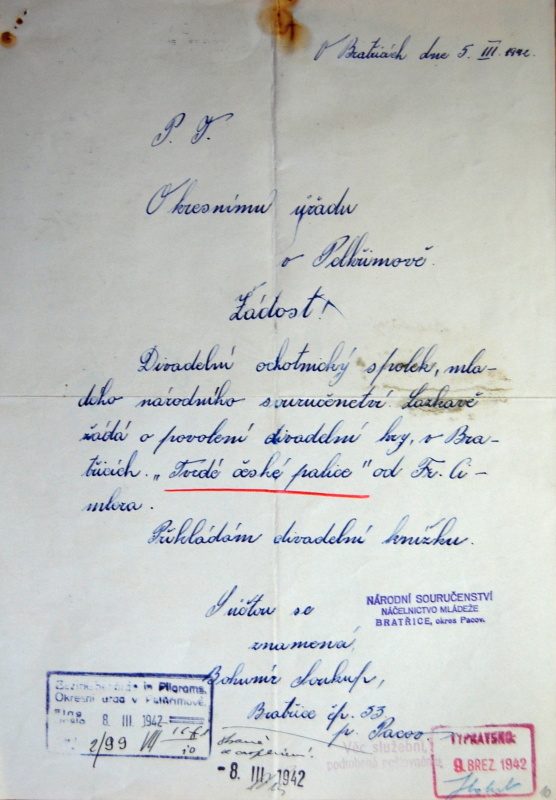 V Bratřicích dne 5. III. 1942.
P. T.
Okresnímu úřadu
v Pelhřimově.
Žádost!
Divadelní ochotnický spolek, mla-
dého národního souručenství Lazkavě
žádá o povolení divadelní hry, v Bra-
třicích. „Tvrdé české palice" od Fr. Ci-
mlera.
Přikládám divadelní knížku.
S úctou se
znamená
Bohumír Soukup,
Bratřice čp. 33
p. Pacov.
NÁRODNÍ SOURUČENSTVÍ
NÁČELNICTVO MLÁDEŽE
BRATŘICE, okres Pacov.
in Pilgrams.
Okresní úřad v Pelhřimově.
8. III. 1942
2/99 VII
- 8. III. 1942
Věc služební,
VYPRAVENO:
9. BŘEZ. 1942